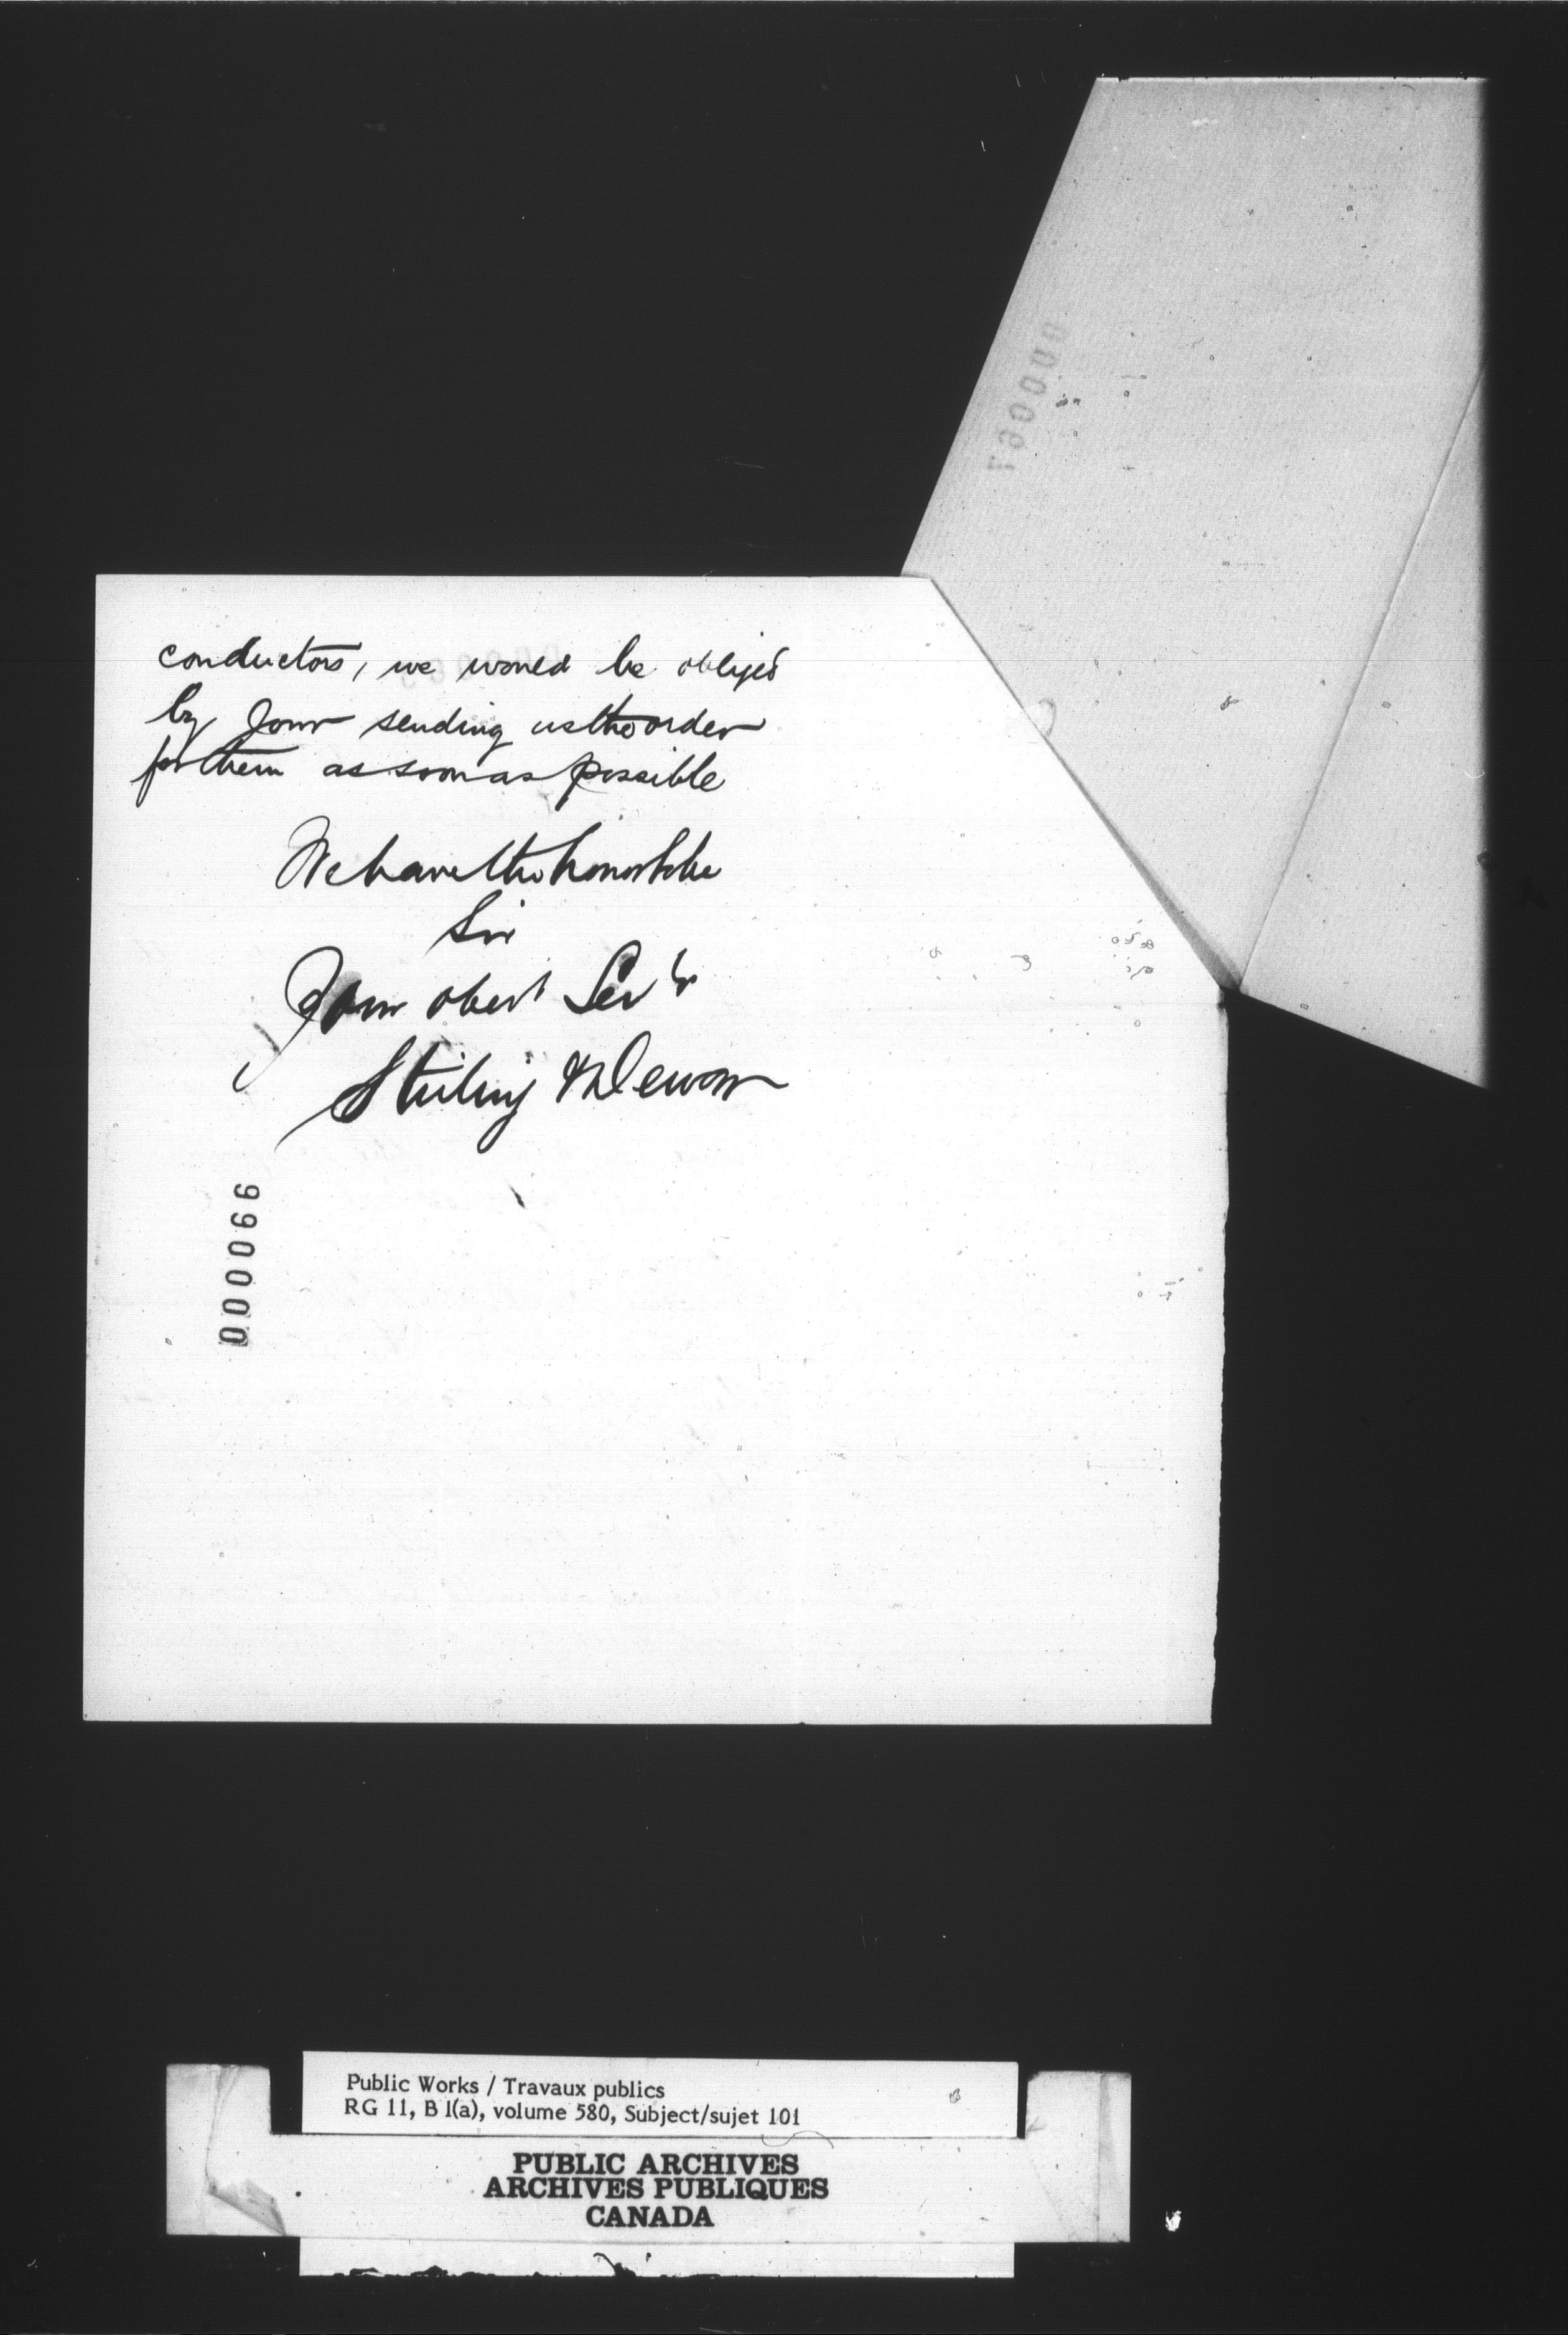 conductors, we would be obliged
by your sending us the order
for them as soon as possible
We have the honor to be
Sir
Your obert Servts
Stirling & Dewar
000066
Public Works / Travaux publics
RG 11, B 1(a), volume 580, Subject/sujet 101
PUBLIC ARCHIVES
ARCHIVES PUBLIQUES
CANADA